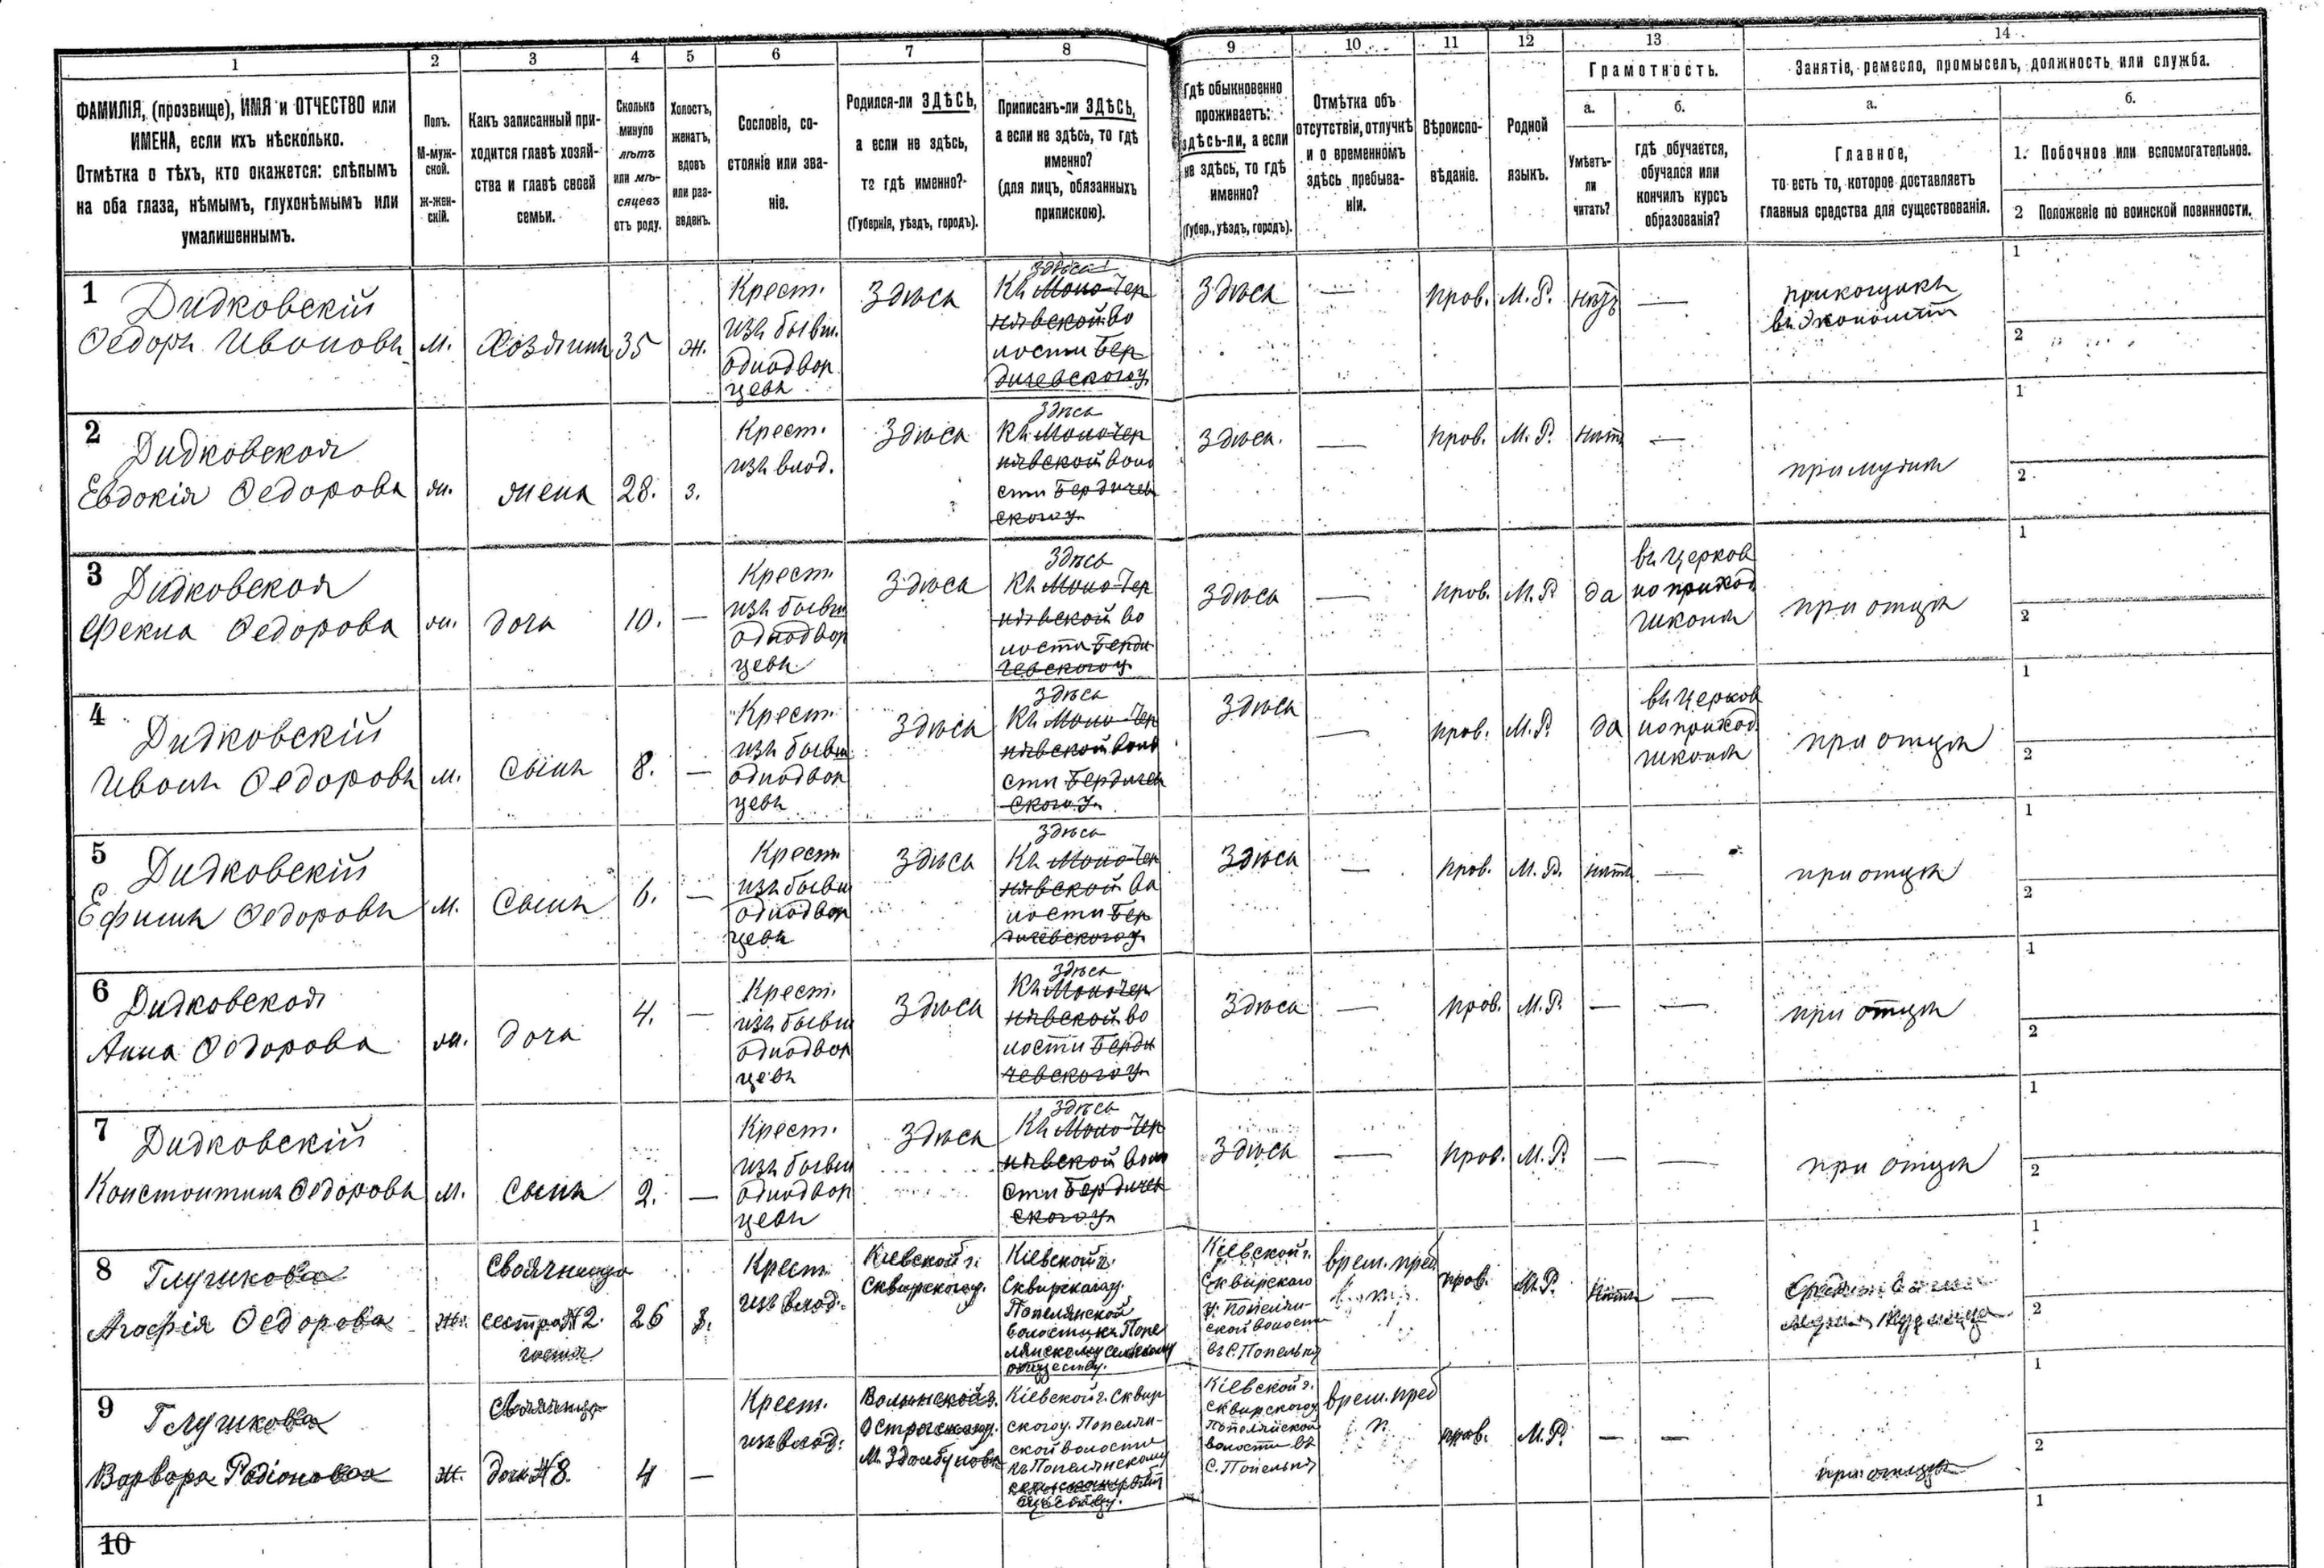 1
2
3
4
5
6
7
8
9
10
11
12
13
14
ФАМИЛІЯ, (прозвище), ИМЯ и ОТЧЕСТВО или
ИМЕНА, если ихъ нѣсколько.
Отмѣтка о тѣхъ, кто окажется: слѣпымъ
на оба глаза, нѣмымъ, глухонѣмымъ или
умалишеннымъ.
Полъ.
М-муж-
ской.
Ж-жен-
скій.
Какъ записанный при-
ходится главѣ хозяй-
ства и главѣ своей
семьи.
Сколько
минуло
лѣтъ
или мѣ-
сяцевъ
отъ роду.
Холостъ,
женатъ,
вдовъ
или раз-
веденъ.
Сословіе, со-
стояніе или зва-
ніе.
Родился-ли ЗДѢСЬ,
а если не здѣсь,
то гдѣ именно?
(Губернія, уѣздъ, городъ).
Приписанъ-ли ЗДѢСЬ,
а если не здѣсь, то гдѣ
именно?
(для лицъ, обязанныхъ
припискою).
Гдѣ обыкновенно
проживаетъ:
здѣсь-ли, а если
не здѣсь, то гдѣ
именно?
(Губер., уѣздъ, городъ).
Отмѣтка объ
отсутствіи, отлучкѣ
и о временномъ
здѣсь пребыва-
ніи.
Вѣроиспо-
вѣданіе.
Родной
языкъ.
Грамотность.
а.
Умѣетъ-
ли
читать?
б.
гдѣ обучается,
обучался или
кончилъ курсъ
образованія?
Занятіе, ремесло, промыселъ, должность или служба.
а.
Главное,
то есть то, которое доставляетъ
главныя средства для существованія.
б.
1. Побочное или вспомогательное.
2 Положеніе по воинской повинности.
1
Дидковскій
Федоръ Ивановъ
м.
Хозяинъ
35
ж.
Крест.
изъ бывш.
однодвор
цевъ
Здѣсь
здѣсь
Къ Мало-Чер
нявской во
лости Бер
дичевского у.
Здѣсь
—
прав.
М. Р.
нѣтъ
—
прикащикъ
въ экономіи
1
2
2
Дидковская
Евдокія Федорова
ж.
жена
28.
з.
Крест.
изъ влад.
Здѣсь
Здѣсь
Къ Малочер
нявской воло
сти Бердичев
ского у.
Здѣсь.
—
прав.
М. Р.
нѣтъ
—
при мужѣ
1
2
3
Дидковская
Фекла Федорова
ж.
дочь
10.
—
Крест.
изъ бывш
однодвор
цевъ
Здѣсь
Здѣсь
Къ Мало-Чер
нявской во
лости Берди
чевского у.
Здѣсь
—
прав.
М. Р.
да
въ церков
но приход.
школѣ
при отцѣ
1
2
4
Дидковскій
Иванъ Федоровъ
м.
сынъ
8.
—
Крест.
изъ бывш
однодвор
цевъ
Здѣсь
Здѣсь
Къ Мало-Чер
нявской воло
сти Бердичев
ского у.
Здѣсь
—
прав.
М. Р.
да
въ церков
но приход.
школѣ
при отцѣ
1
2
5
Дидковскій
Ефимъ Федоровъ
м.
Сынъ
6.
—
Крест
изъ бывш
однодвор
цевъ
Здѣсь
Здѣсь
Къ Мало-Чер
нявской во
лости Бер
дичевского у.
Здѣсь
—
прав.
М. Р.
нѣтъ
—
при отцѣ
1
2
6
Дидковская
Анна Федорова
ж.
дочь
4.
—
Крест.
изъ бывш
однодвор
цевъ
Здѣсь
Здѣсь
Къ Малочер
нявской во
лости Берди
чевского у.
Здѣсь
—
прав.
М. Р.
—
—
при отцѣ
1
2
7
Дидковскій
Константинъ Федоровъ
м.
сынъ
2.
—
Крест.
изъ бывш
однодвор
цевъ
Здѣсь
Здѣсь
Къ Мало-Чер
нявской воло
сти Бердичев
ского у.
Здѣсь
—
прав.
М. Р.
—
—
при отцѣ
1
2
8
Глушкова
Агафія Федорова
ж.
свояченица
сестра №2.
26
з.
Крест
изъ влад.
Кіевской г.
Сквирского у.
Кіевской г.
Сквирскаго у.
Попелянской
волости къ Попе
лянскому сельскому
обществу.
Кіевской г.
Сквирскаго
у. Попелян-
ской волости
въ С. Попельнѣ
врем. преб
прав.
М. Р.
нѣтъ
—
1
2
9
Глушкова
Варвара Радіонова
ж.
дочь №8.
4
—
Крест.
изъ влад.
Волынской г.
Острожского у.
М. Здолбуновѣ
Кіевской г. Сквир
ского у. Попелян-
ской волости
къ Попелянскому
обществу.
Кіевской г.
Сквирского у
Попелянской
волости въ
С. Попельнѣ
врем. преб
прав.
М. Р.
—
—
при отцѣ
1
2
10
1